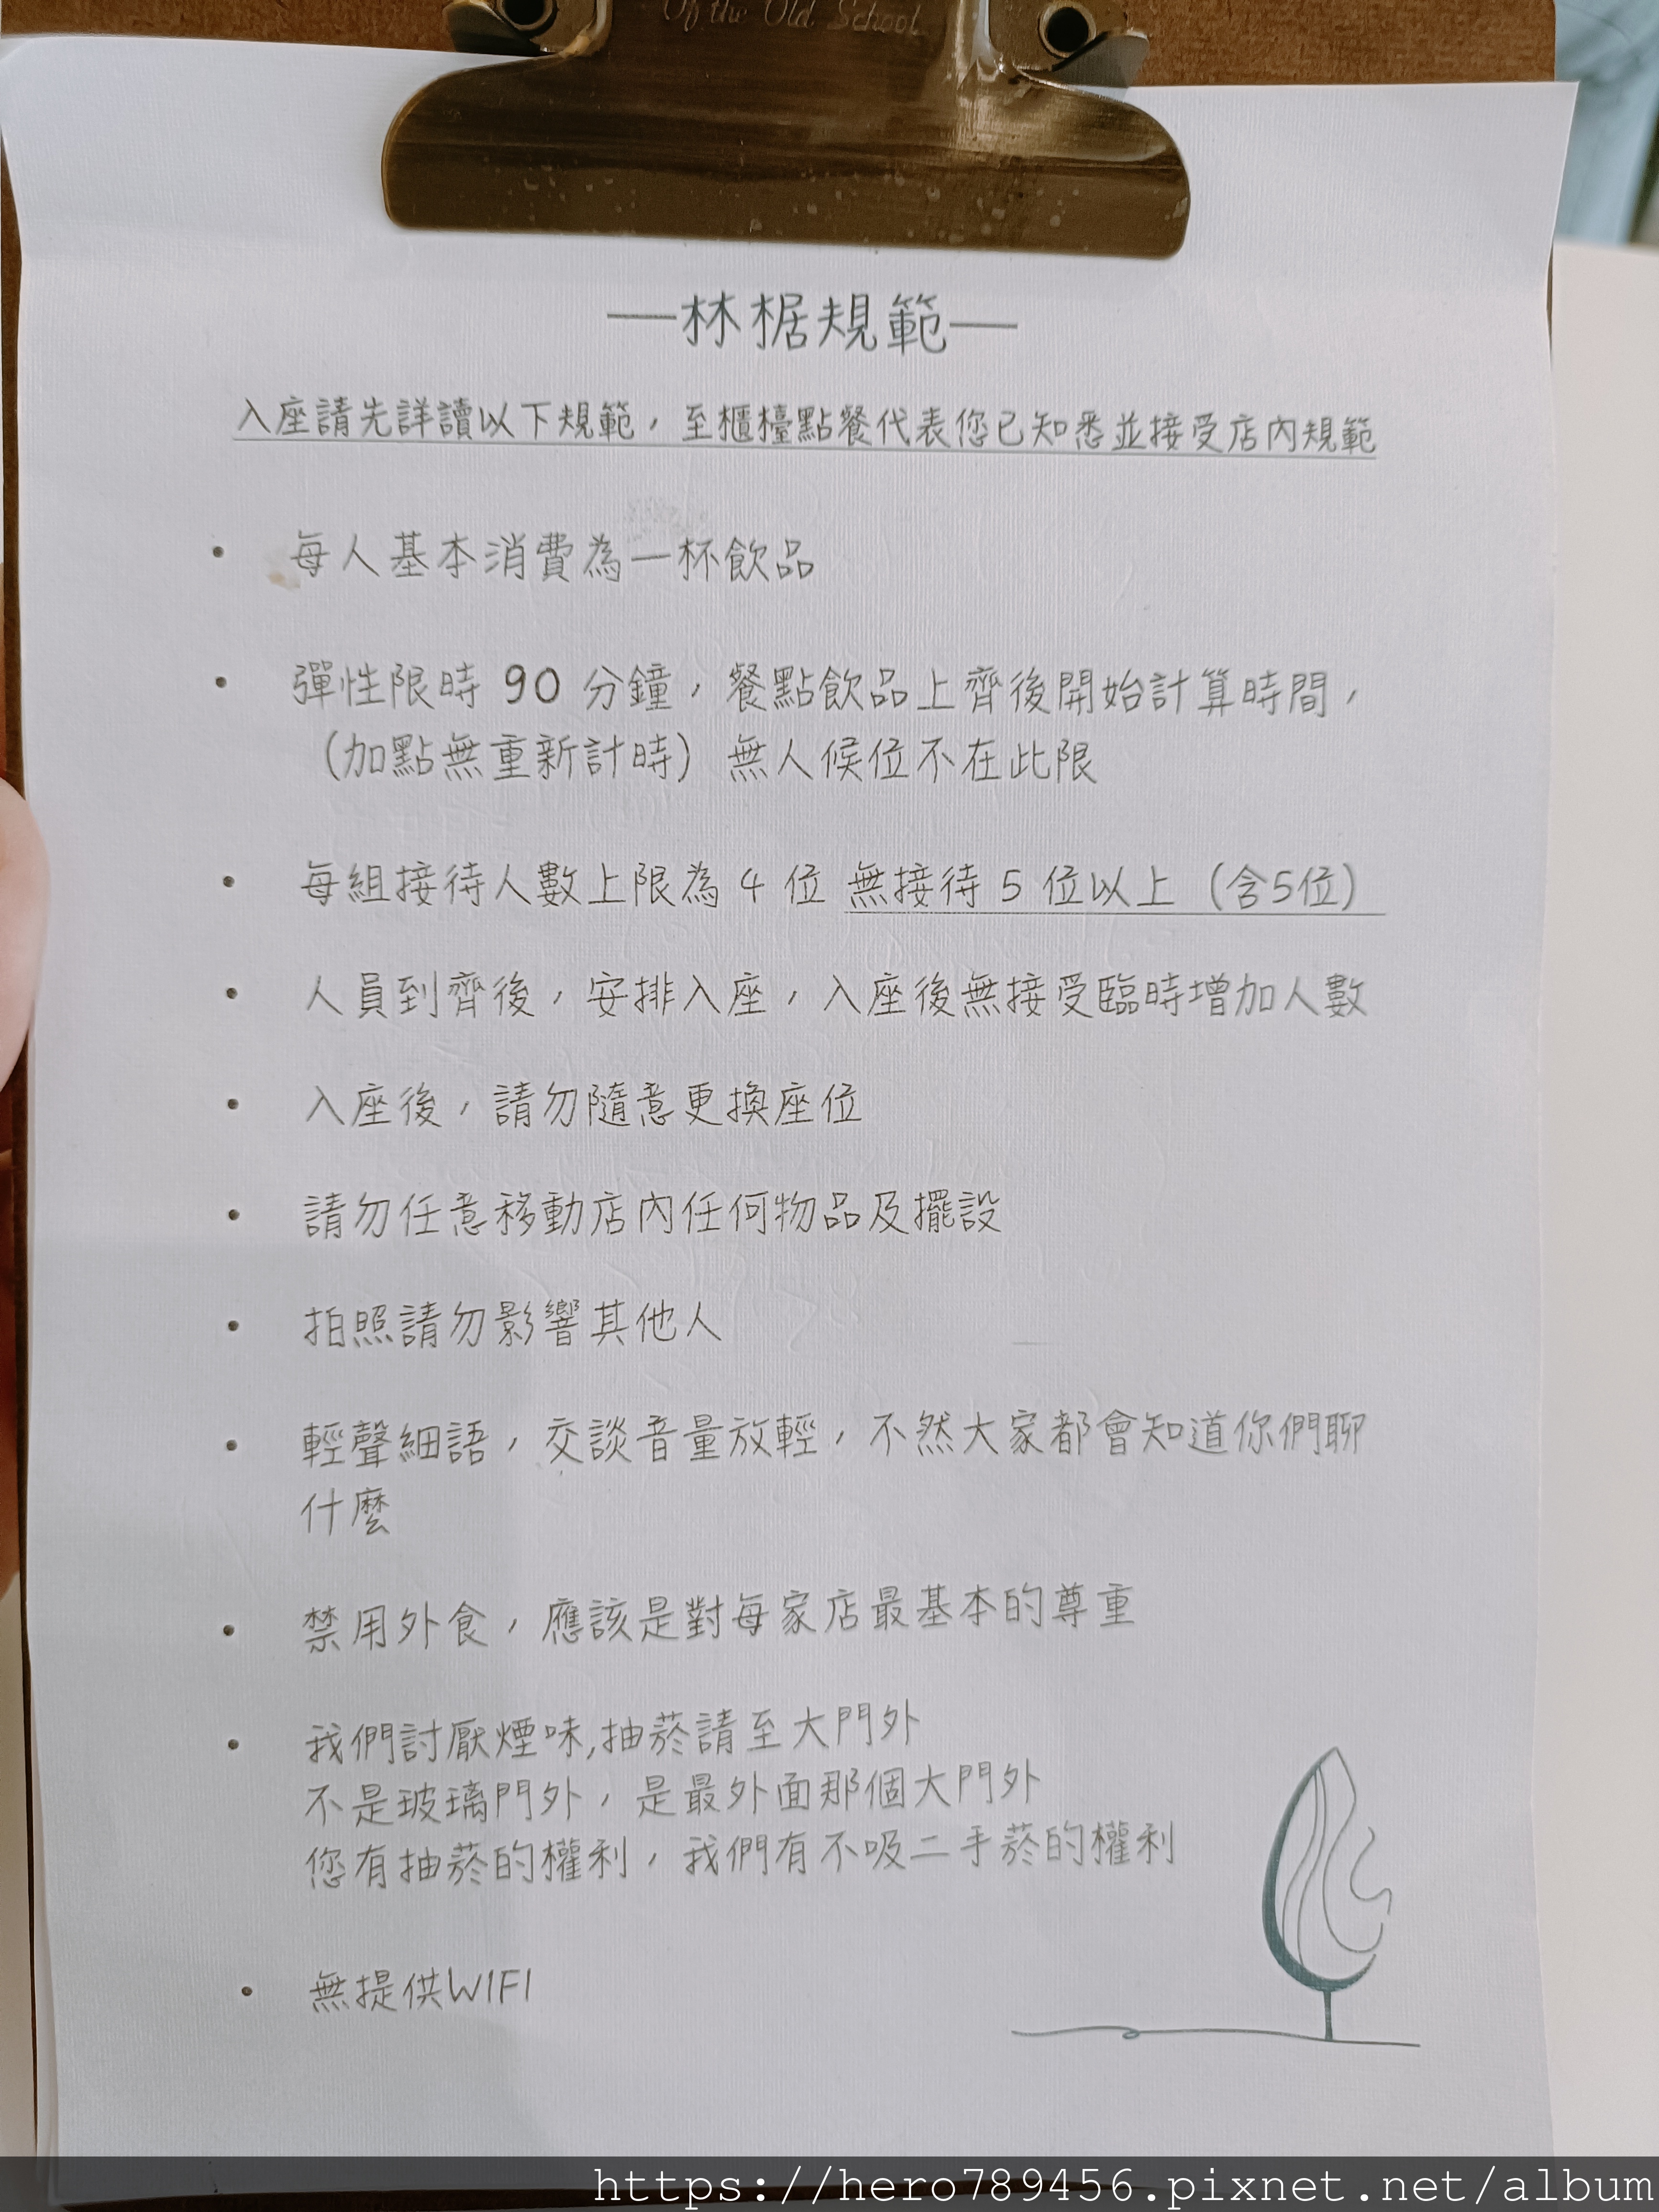 Of the Old School
—林椐規範—
入座請先詳讀以下規範，至櫃檯點餐代表您已知悉並接受店內規範
• 每人基本消費為一杯飲品
• 彈性限時 90 分鐘，餐點飲品上齊後開始計算時間，
（加點無重新計時）無人候位不在此限
• 每組接待人數上限為 4 位 無接待 5 位以上（含5位）
• 人員到齊後，安排入座，入座後無接受臨時增加人數
• 入座後，請勿隨意更換座位
• 請勿任意移動店內任何物品及擺設
• 拍照請勿影響其他人
• 輕聲細語，交談音量放輕，不然大家都會知道你們聊
什麼
• 禁用外食，應該是對每家店最基本的尊重
• 我們討厭煙味,抽菸請至大門外
不是玻璃門外，是最外面那個大門外
您有抽菸的權利，我們有不吸二手菸的權利
• 無提供WIFI
https://hero789456.pixnet.net/album